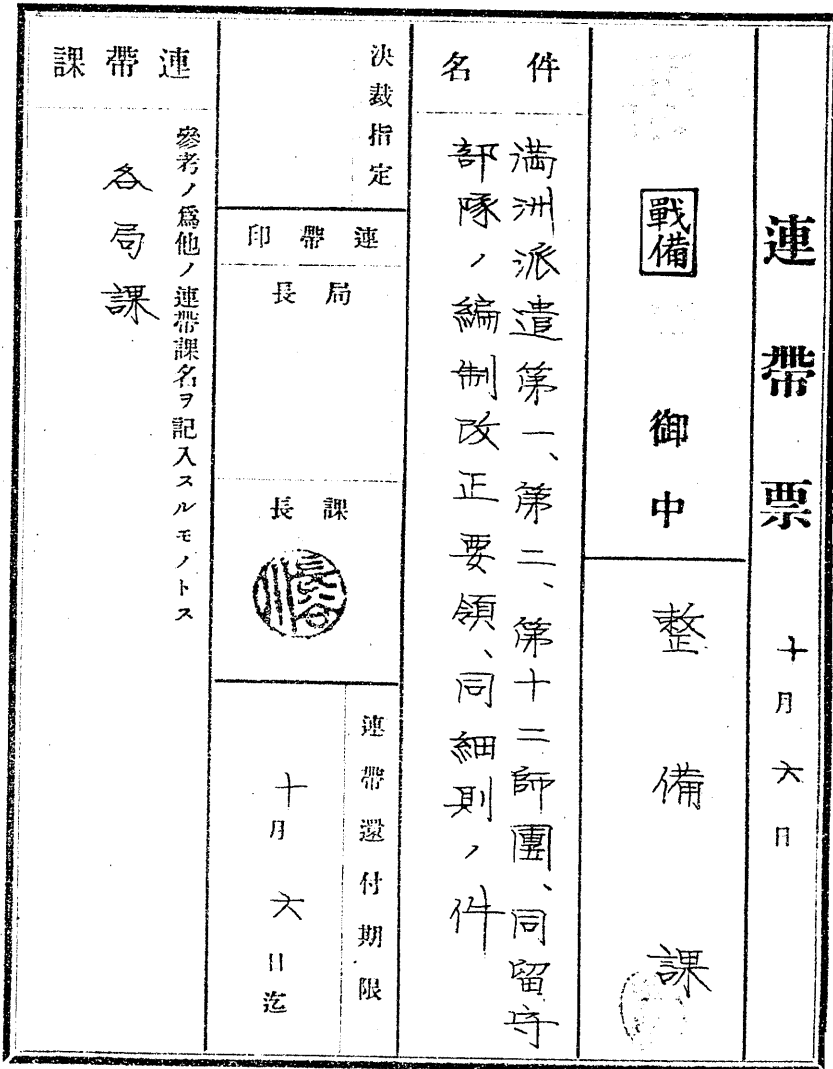 連帶票 十月六日
戰備 御中
整備課
件名
満洲派遣第一、第二、第十二師團、同留守
部隊ノ編制改正要領、同細則ノ件
決裁指定
連帶印
局長
課長
連帶還付期限
十月六日迄
連帶課
參考ノ爲他ノ連帶課名ヲ記入スルモノトス
各局課